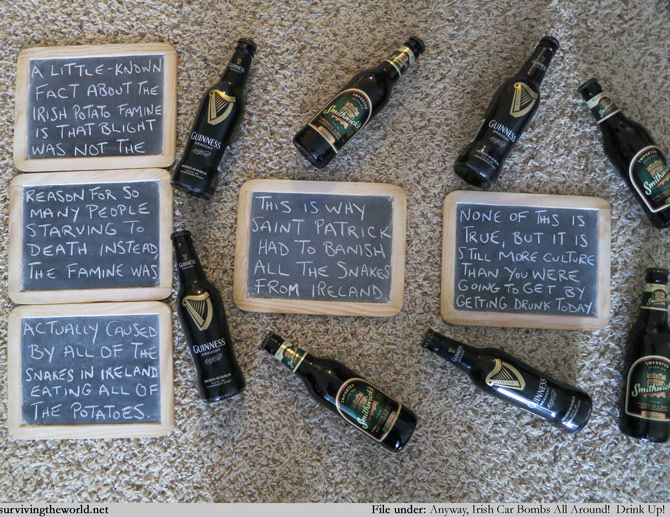 A LITTLE-KNOWN
FACT ABOUT THE
IRISH POTATO FAMINE
IS THAT BLIGHT
WAS NOT THE
REASON FOR SO
MANY PEOPLE
STARVING TO
DEATH INSTEAD,
THE FAMINE WAS
ACTUALLY CAUSED
BY ALL OF THE
SNAKES IN IRELAND
EATING ALL OF
THE POTATOES.
THIS IS WHY
SAINT PATRICK
HAD TO BANISH
ALL THE SNAKES
FROM IRELAND.
NONE OF THIS IS
TRUE, BUT IT IS
STILL MORE CULTURE
THAN YOU WERE
GOING TO GET BY
GETTING DRUNK TODAY.
GUINNESS
DRAUGHT
Smithwick's
GUINNESS
DRAUGHT
IMPORTED
Smithwick's
GUINNESS
DRAUGHT
IMPORTED
Smithwick's
GUINNESS
DRAUGHT
IMPORTED
Smithwick's
survivingtheworld.net
File under: Anyway, Irish Car Bombs All Around! Drink Up!